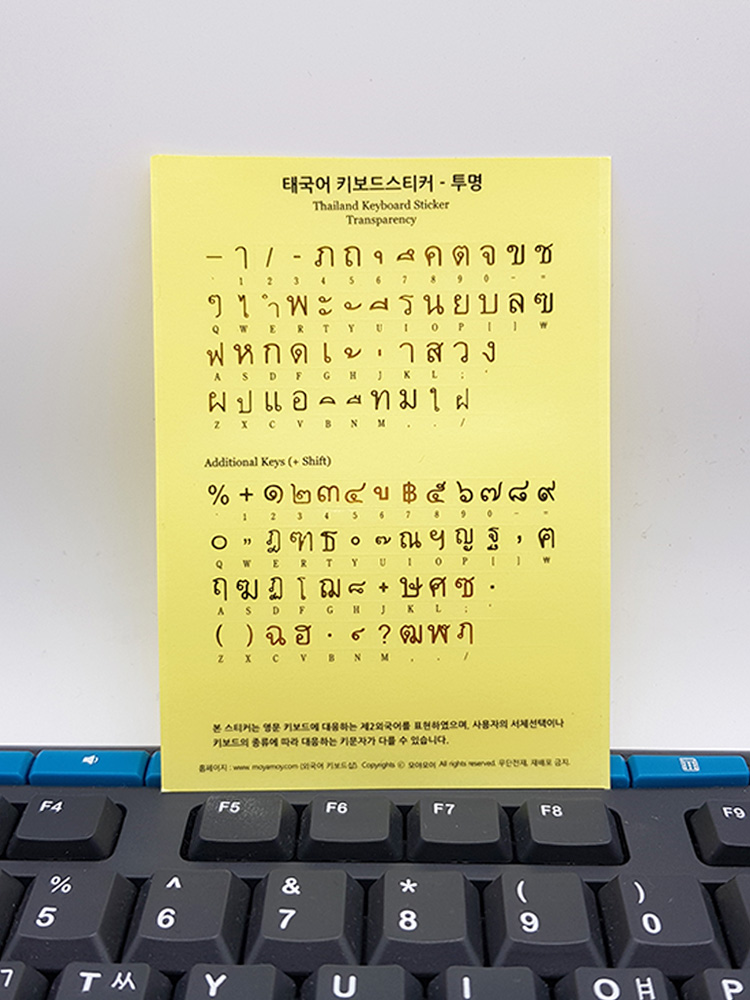 태국어 키보드스티커 - 투명
Thailand Keyboard Sticker
Transparency
_ า / - ภ ถ ุ ึ ค ต จ ข ช
` 1 2 3 4 5 6 7 8 9 0 - =
ๆ ไ ำ พ ะ ั ี ร น ย บ ล ฃ
Q W E R T Y U I O P [ ] ₩
ฟ ห ก ด เ ้ ่ า ส ว ง
A S D F G H J K L ; '
ผ ป แ อ ิ ื ท ม ใ ฝ
Z X C V B N M , . /
Additional Keys (+ Shift)
% + ๑ ๒ ๓ ๔ ู ฿ ๕ ๖ ๗ ๘ ๙
` 1 2 3 4 5 6 7 8 9 0 - =
๐ " ฎ ฑ ธ ํ ๊ ณ ฯ ญ ฐ , ฅ
Q W E R T Y U I O P [ ] ₩
ฤ ฆ ฏ โ ฌ ็ ๋ ษ ศ ซ .
A S D F G H J K L ; '
( ) ฉ ฮ ฺ ์ ? ฒ ฬ ฦ
Z X C V B N M , . /
본 스티커는 영문 키보드에 대응하는 제2외국어를 표현하였으며, 사용자의 서체선택이나
키보드의 종류에 따라 대응하는 키문자가 다를 수 있습니다.
홈페이지 : www. moyamoy.com (외국어 키보드샵) Copyrights ⓒ 모야모이 All rights reserved. 무단전재, 재배포 금지.
F4 F5 F6 F7 F8 F9
% ^ & * ( )
5 6 7 8 9 0
T ㅆ Y U I O ㅐ P